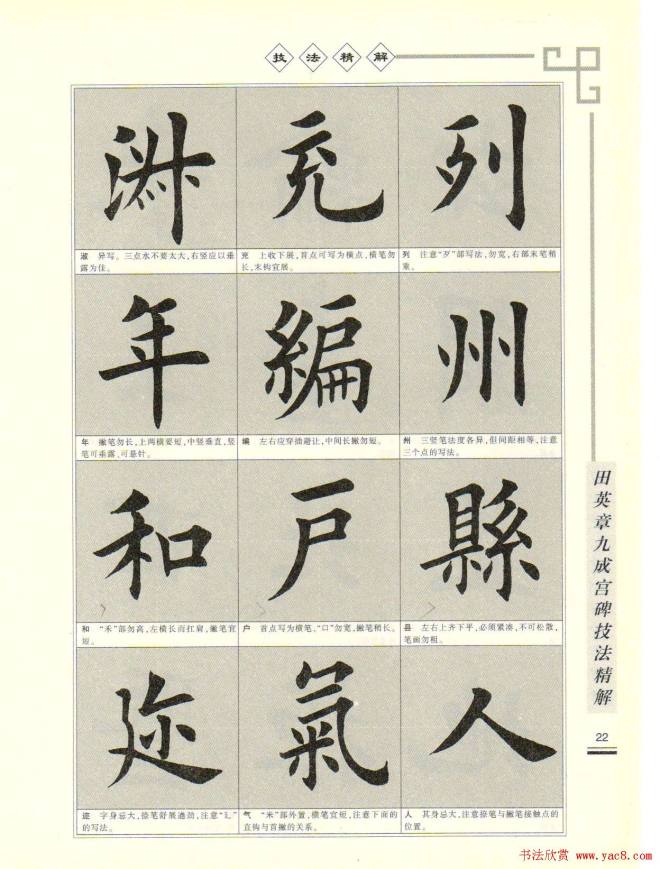 技法精解
淑 充 列
淑 异写。三点水不要太大，右竖应以垂
露为佳。
充 上收下展，首点可写为横点，横笔勿
长，末构宜展。
列 注意“歹”部写法，勿宽，右部末笔稍
重。
年 編 州
年 撇笔勿长，上两横要短，中竖垂直，竖
笔可垂露、可悬针。
编 左右应穿插避让，中间长撇勿短。
州 三竖笔法度各异，但间距相等，注意
三个点的写法。
和 戸 縣
和 “禾”部勿高，左横长而扛肩，撇笔宜
短。
户 首点写为横笔，“口”勿宽，撇笔稍长。
县 左右上齐下平，必须紧凑，不可松散，
笔画勿粗。
迩 氣 人
迩 字身忌大，捺笔舒展遒劲，注意“辶”
的写法。
气 “米”部外置，横笔宜短，注意下面的
直钩与首撇的关系。
人 其身忌大，注意捺笔与撇笔接触点的
位置。
田英章九成宫碑技法精解
22
书法欣赏 www.yac8.com